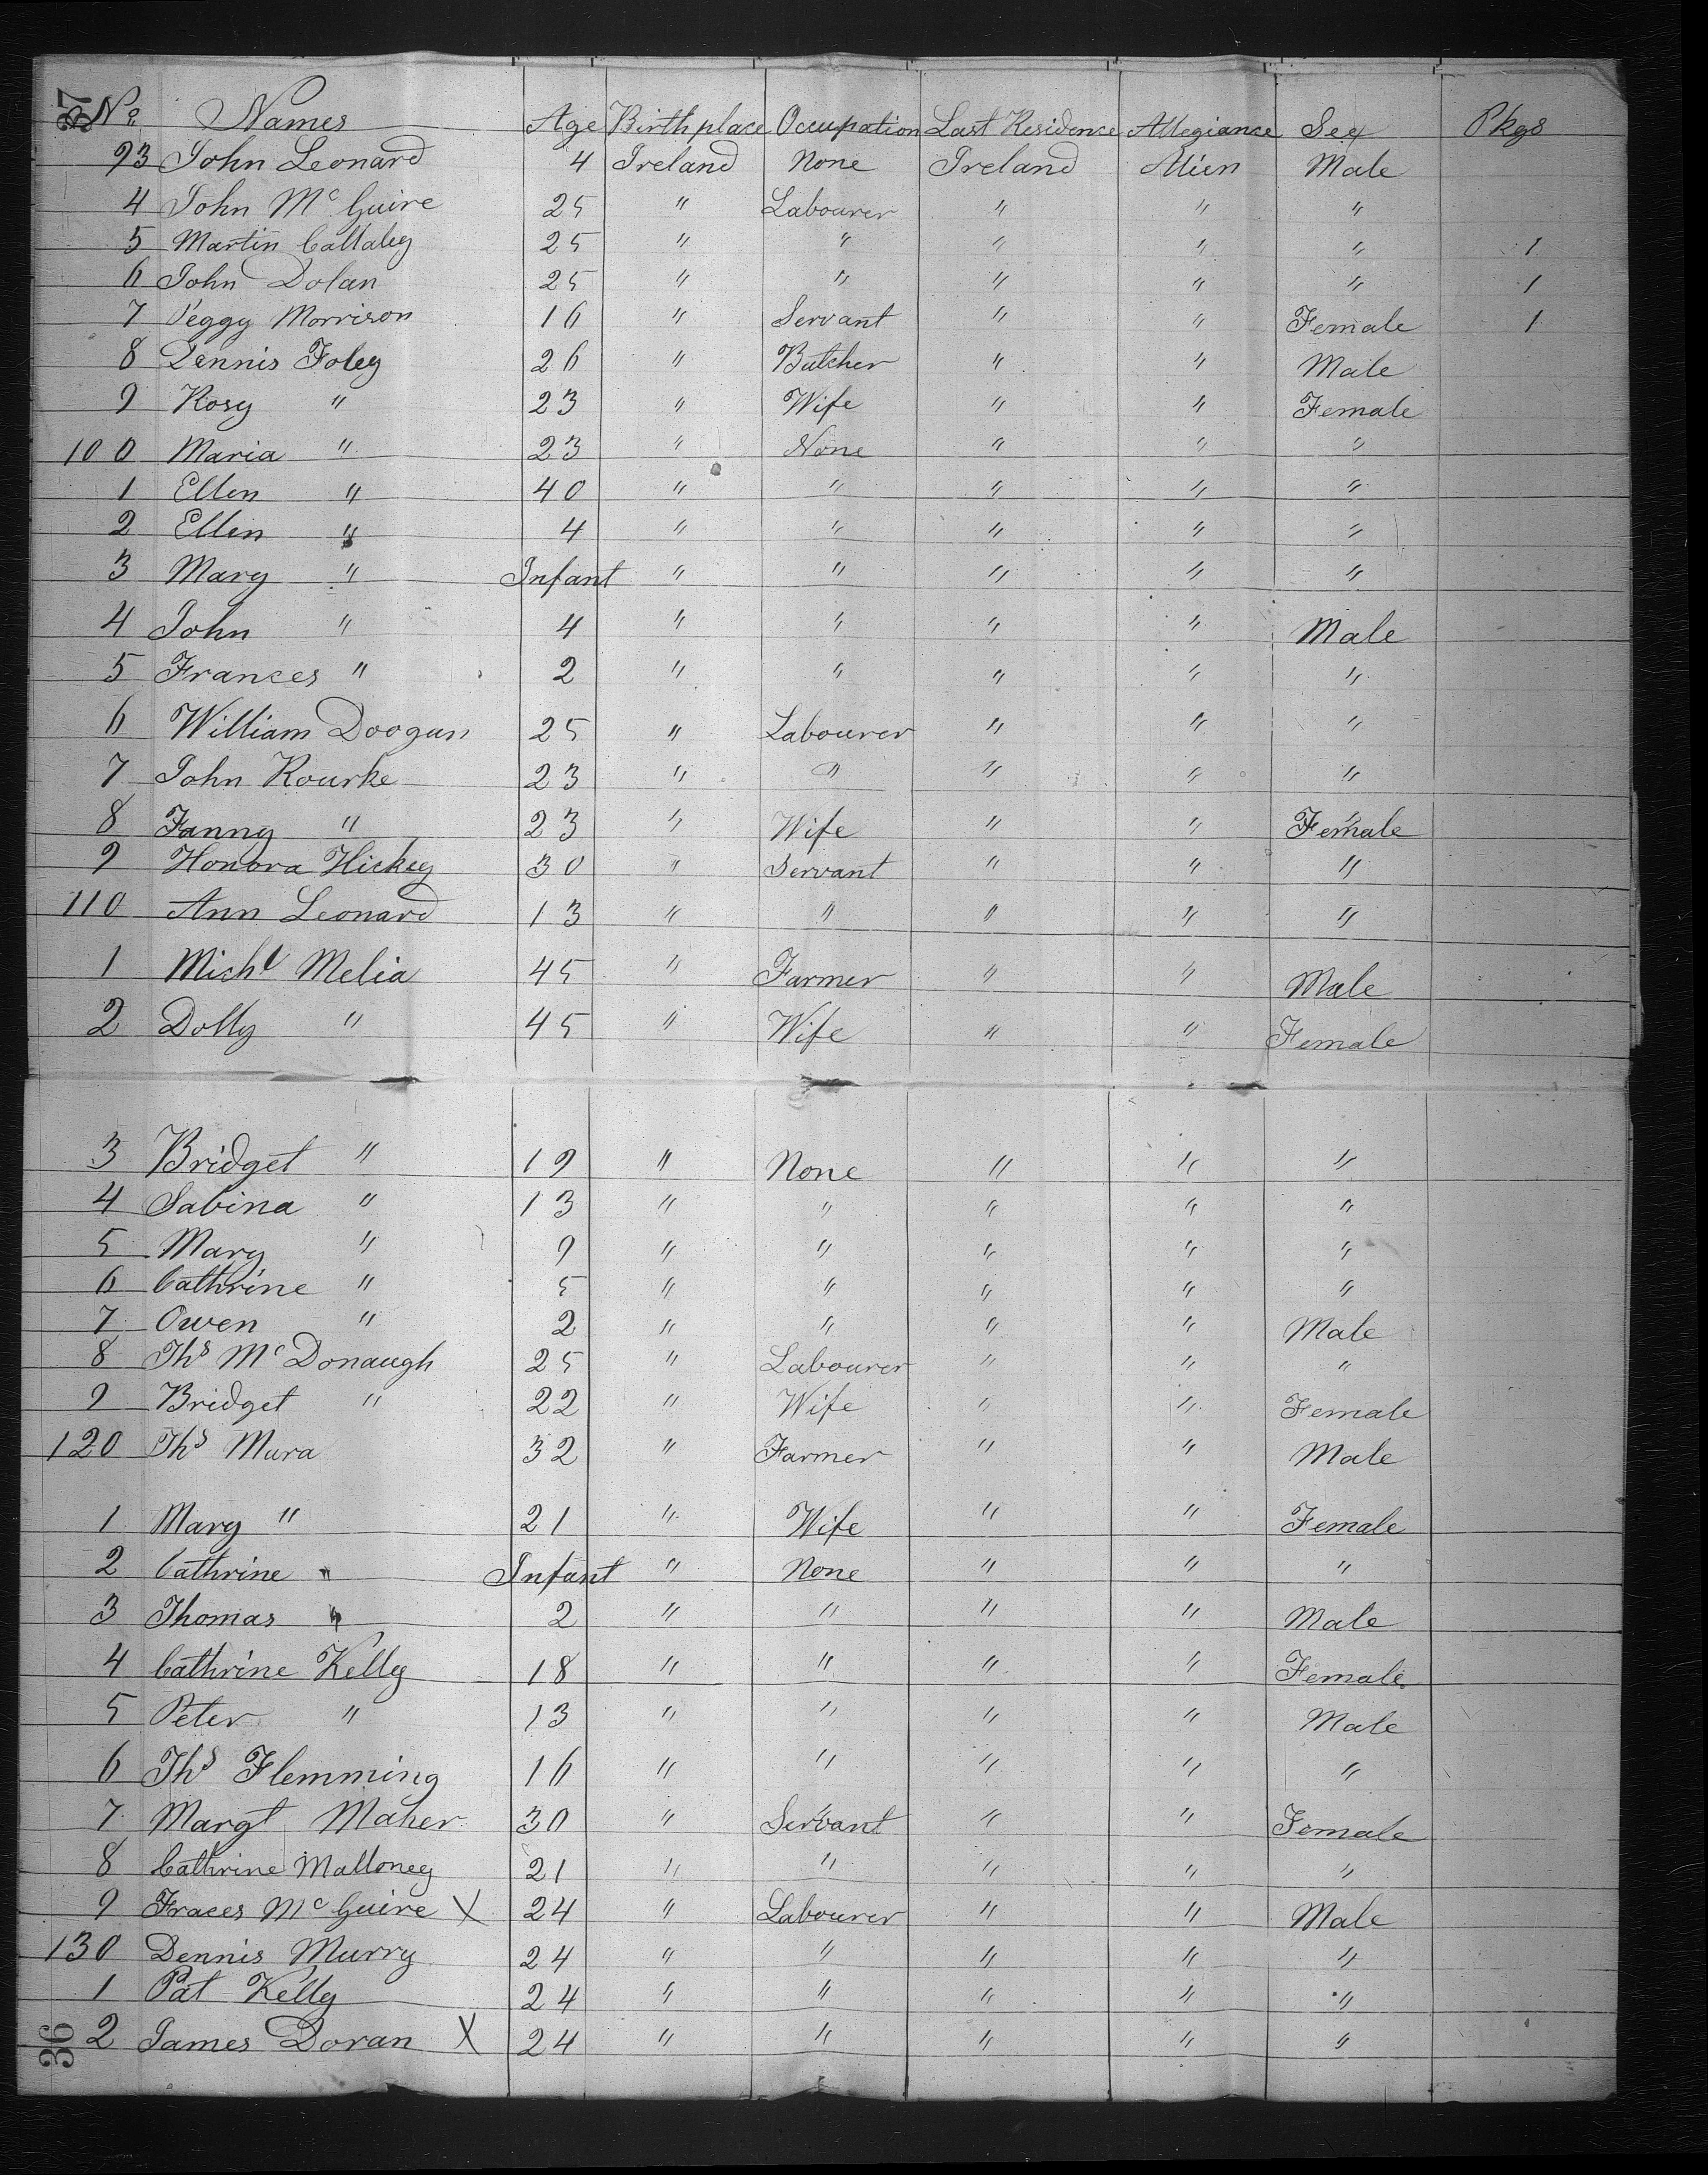 37
No. Names Age Birthplace Occupation Last Residence Allegiance Sex Pkgs
93 John Leonard 4 Ireland None Ireland Alien Male
4 John Mc Guire 25 " Labourer " " "
5 Martin Callaley 25 " " " " " 1
6 John Dolan 25 " " " " " 1
7 Peggy Morrison 16 " Servant " " Female 1
8 Dennis Foley 26 " Butcher " " Male
9 Rosy " 23 " Wife " " Female
100 Maria " 23 " None " " "
1 Ellen " 40 " " " " "
2 Ellen " 4 " " " " "
3 Mary " Infant " " " " "
4 John " 4 " " " " Male
5 Frances " 2 " " " " "
6 William Doogan 25 " Labourer " " "
7 John Rourke 23 " " " " "
8 Fanny " 23 " Wife " " Female
9 Honora Hickey 30 " Servant " " "
110 Ann Leonard 13 " " " " "
1 Michl Melia 45 " Farmer " " Male
2 Dolly " 45 " Wife " " Female
3 Bridget " 19 " None " " "
4 Sabina " 13 " " " " "
5 Mary " 9 " " " " "
6 Cathrine " 5 " " " " "
7 Owen " 2 " " " " Male
8 Ths Mc Donaugh 25 " Labourer " " "
9 Bridget " 22 " Wife " " Female
120 Ths Mura 32 " Farmer " " Male
1 Mary " 21 " Wife " " Female
2 Cathrine " Infant " None " " "
3 Thomas " 2 " " " " Male
4 Cathrine Kelly 18 " " " " Female
5 Peter " 13 " " " " Male
6 Ths Flemming 16 " " " " "
7 Margt Maher 30 " Servant " " Female
8 Cathrine Malloney 21 " " " " "
9 Fraces Mc Guire X 24 " Labourer " " Male
130 Dennis Murry 24 " " " " "
1 Pat Kelly 24 " " " " "
2 James Doran X 24 " " " " "
36